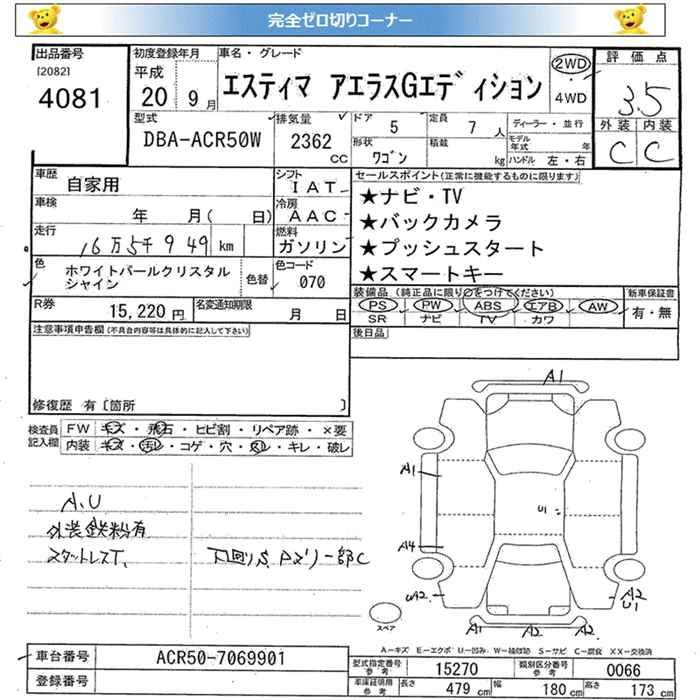 完全ゼロ切りコーナー
出品番号
[2082]
4081
初度登録年月
平成
20 9月
車名・グレード
エスティマ アエラスGエディション
2WD
・
4WD
評価点
3.5
外装 内装
C C
型式
DBA-ACR50W
排気量
2362
CC
ドア 5
定員 7 人
形状 ワゴン
積載 kg
ディーラー・並行
モデル年式 年
ハンドル 左・右
車歴 自家用
シフト IAT
車検 年 月( 日)
冷房 AAC
走行 16万5千949 km
燃料 ガソリン
色 ホワイトパールクリスタルシャイン
色替
色コード 070
R券 15,220円
名変通知期限 月 日
セールスポイント(正常に機能するものに限ります)
★ナビ・TV
★バックカメラ
★プッシュスタート
★スマートキー
装備品(純正品に限り○をつけてください)
PS PW ABS エアB AW
SR ナビ TV カワ
新車保証書
有・無
後日品
注意事項申告欄(不具合内容等は具体的に記入して下さい)
修復歴 有[箇所 ]
検査員記入欄
FW キズ・飛石・ヒビ割・リペア跡・×要
内装 キズ・汚レ・コゲ・穴・スレ・キレ・破レ
A.U
外装鉄粉有
スタートレスT、
下回りS、Pスリ一部C
A1
A1
U1
A4
UA2
A2
U1
A1 A2 A2
スペア
A−キズ E−エクボ U−凹み W−補修跡 S−サビ C−腐食 XX−交換済
車台番号 ACR50-7069901
登録番号
型式指定番号参考 15270
類別区分番号参考 0066
車庫証明用参考
長さ 479 cm
幅 180 cm
高さ 173 cm